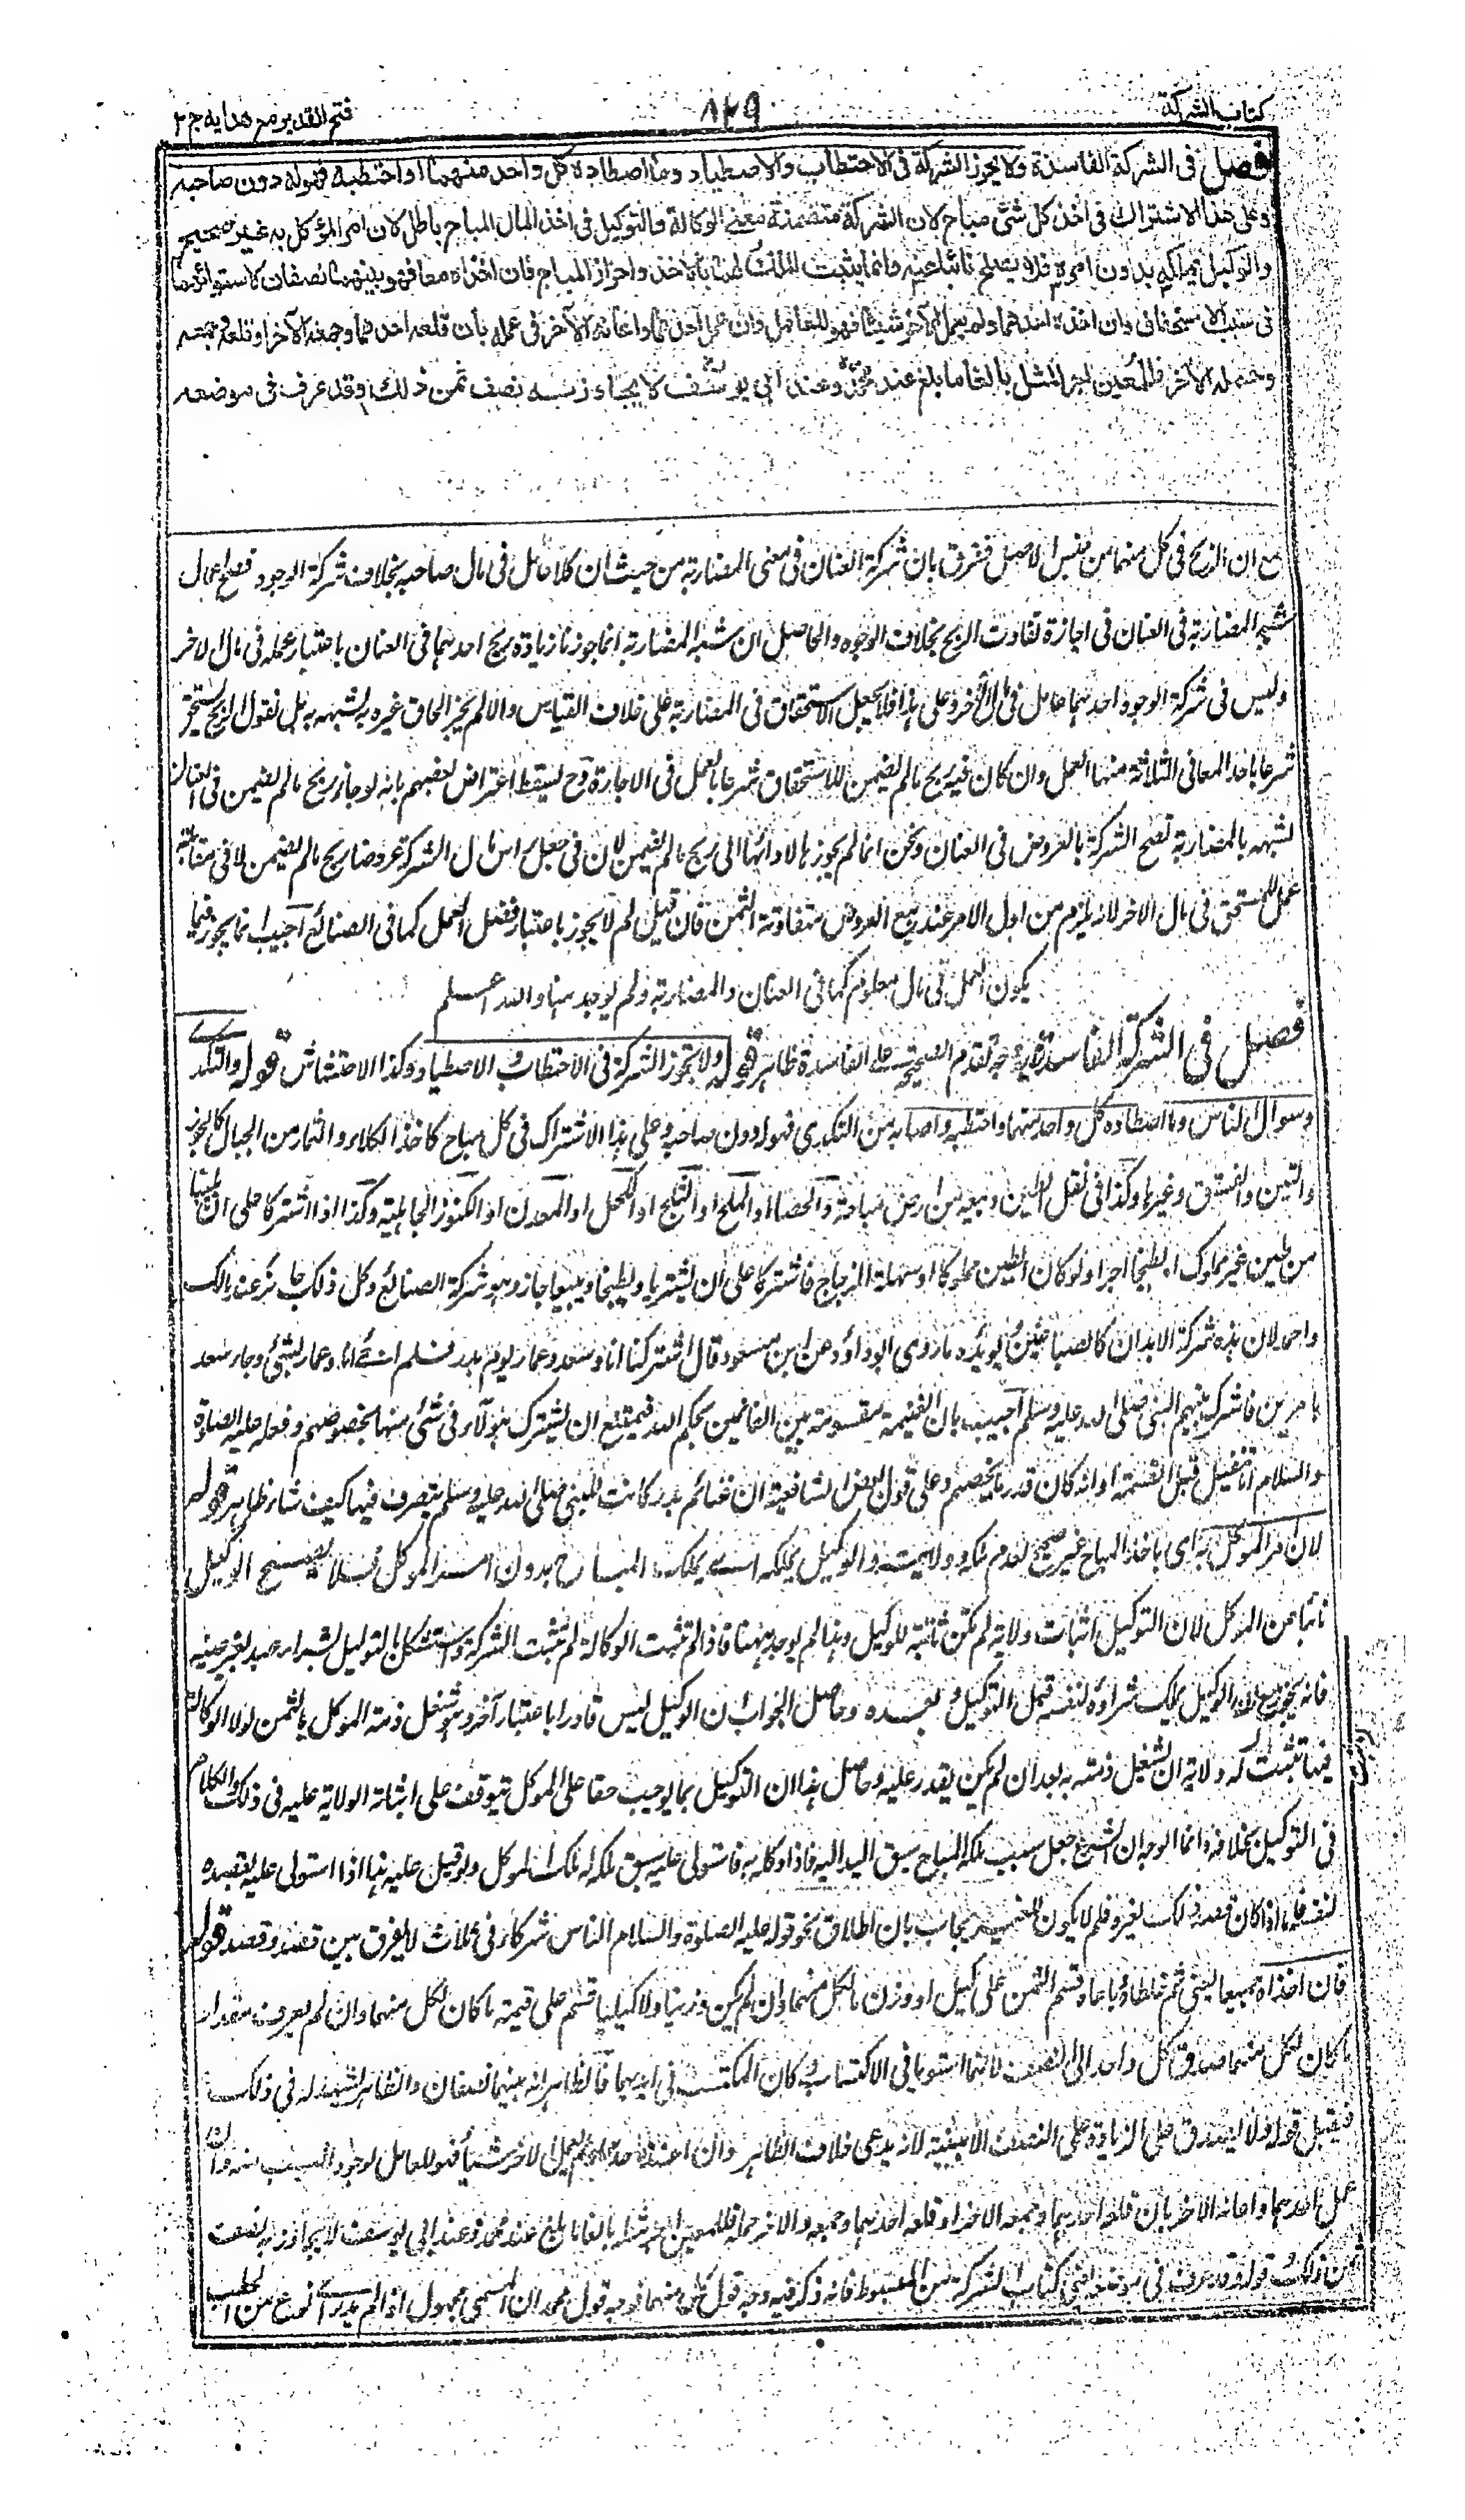 كتاب الشركة
٨٢٩
فتح القدير مع هدايه ج ٢
فصل فى الشركة الفاسدة ولا يجوز الشركة فى الاحتطاب والاصطياد وما اصطاده كل واحد منهما او احتطبه فهو له دون صاحبه
وعلى هذا الاشتراك فى اخذ كل شئ مباح لان الشركة متضمنة معنى الوكالة والتوكيل فى اخذ المال المباح باطل لان امر المؤكل به غير صحيح
والوكيل يملكه بدون امره فلا يصلح نائبا عنه وانما يثبت الملك لهما بالاخذ واحراز المباح فان اخذاه معا فهو بينهما نصفان لاستوائهما
فى سبب الاستحقاق وان اخذه احدهما ولم يعمل الآخر شيئا فهو للعامل وان عمل احدهما واعانه الآخر فى عمله بان قلعه احدهما وجمعه الآخر او قلعه وجمعه
وحمله الآخر فللمعين اجر المثل بالغا ما بلغ عند محمد وعند ابى يوسف لا يجاوز به نصف ثمن ذلك وقد عرف فى موضعه
مع ان الربح فى كل منهما من نفس الاصل ففرق بان شركة العنان فى معنى المضاربة من حيث ان كلا عامل فى مال صاحبه بخلاف شركة الوجوه فصح اعمال
شبه المضاربة فى العنان فى اجازة تفاوت الربح بخلاف الوجوه والحاصل ان شبه المضاربة انما جوزنا زيادة ربح احدهما فى العنان باعتبار عمله فى مال الاخر
وليس فى شركة الوجوه احدهما عامل فى مال الاخر وعلى هذا فلا يجعل الاستحقاق فى المضاربة على خلاف القياس والا لم يجز الحاق غيره به لشبهه به بل نقول الربح يستحق
شرعا باحد المعانى الثلاثة منها العمل وان كان فيه ربح ما لم يضمن للاستحقاق شرعا بالعمل فى الاجارة وح ليسقط اعتراض بعضهم بانه لو جاز ربح ما لم يضمن فى العنان
لشبهه بالمضاربة تصح الشركة بالعروض فى العنان ونحن انما لم يجوزها لادائها الى ربح ما لم يضمن لان فى جعل راس مال الشركة عروضا ربح ما لم يضمن لا فى مقابلة
عمل للمستحق فى مال الاخر لانه يلزم من اول الامر عند بيع العروض متفاوتة الثمن فان قيل لم لا يجوز باعتبار فضل العمل كما فى الصنائع اجيب انما يجوز فيما
يكون العمل فى مال معلوم كما فى العنان والمضاربة ولم يوجد هنا والله اعلم
فصل فى الشركة الفاسدة وجه تقدم الصحيحة على الفاسدة ظاهر قوله ولا تجوز الشركة فى الاحتطاب والاصطياد وكذا الاحتشاش قوله والتكدى
وسوال الناس وما اصطاده كل واحد منهما واحتطبه واصابه من التكدى فهو له دون صاحبه وعلى هذا الاشتراك فى كل مباح كاخذ الكلاء والثمار من الجبال كالجوز
والتين والفستق وغيرها وكذا فى نقل الطين وبيعه من ارض مباحة والحصا او الملح او الثلج او الكحل او المعدن او الكنوز الجاهلية وكذا اذا اشتركا على ان يلبنا
من طين غير مملوك او يطبخا اجرا ولو كان الطين مملوكا او سهلة الزجاج فاشتركا على ان يشتريا ويطبخا ويبيعا جاز وهو شركة الصنائع وكل ذلك جائز عند مالك
واحمد لان هذه شركة الابدان كالصباغين ويؤيده ما روى ابو داؤد عن ابن مسعود قال اشتركنا انا وسعد وعمار يوم بدر فلم اجئ انا وعمار بشئ وجاء سعد
باسيرين فاشرك بينهم النبى صلى الله عليه وسلم اجيب بان الغنيمة مقسومة بين الغانمين بحكم الله فيمتنع ان يشترك هؤلاء فى شئ منها بخصوصهم وفعله عليه الصلوة
والسلام انما تنفيل قبل القسمة او انه كان قدر ما يخصهم وعلى قول بعض الشافعية ان غنائم بدر كانت للنبى صلى الله عليه وسلم يتصرف فيها كيف شاء ظاهر قوله
لان امر الموكل به اى باخذ المباح غير صحيح لعدم ملكه وولايته والوكيل يملكه اى يملك المباح بدون امر الموكل فلا يصح الوكيل
نائبا عن الموكل لان التوكيل اثبات ولاية لم تكن ثابتة للوكيل وهذا لم يوجد هنا فاذا لم تثبت الوكالة لم تثبت الشركة واستشكل بالتوكيل بشراء عبد بغير عينه
فانه يجوز مع ان الوكيل يملك شراؤه لنفسه قبل التوكيل وبعده وحاصل الجواب ان الوكيل ليس قادرا باعتبار آخر وهو شغل ذمة الموكل بالثمن لولا الوكالة
فبها تثبت له ولاية ان يشغل ذمته به بعد ان لم يكن يقدر عليه وحاصل هذا ان التوكيل بما يوجب حقا على الموكل يتوقف على اثباته الولاية عليه فى ذلك والكلام
فى التوكيل بخلافه وانما الوجه ان الشرع جعل سبب ملك المباح سبق اليد اليه فاذا وكله به فاستولى عليه سبق ملكه له ملك الموكل ولو قيل عليه هذا اذا استولى عليه بقصده
لنفسه فاما اذا كان قصد ذلك لغيره فلم لا يكون للغير يجاب بان اطلاق نحو قوله عليه الصلوة والسلام الناس شركاء فى ثلاث لا يفرق بين قصد وقصد قوله
فان اخذاه جميعا يعنى ثم خلطاه وباعاه قسم الثمن على كيل او وزن ما لكل منهما وان لم يكن وزنيا ولا كيليا قسم على قيمة ما كان لكل منهما وان لم يعرف مقدار
ما كان لكل منهما صدق كل واحد الى النصف لانهما استويا فى الاكتساب وكان المكتسب فى ايديهما فالظاهر انه بينهما نصفان والظاهر يشهد له فى ذلك
فيقبل قوله ولا يصدق على الزيادة على النصف الا ببينة لانه يدعى خلاف الظاهر وان اخذه احدهما ولم يعمل الاخر شيئا فهو للعامل لوجود السبب منه وان
عمل احدهما واعانه الاخر بان قلعه احدهما وجمعه الاخر او قلعه احدهما وجمعه والاخر حمله فللمعين اجر مثله بالغا ما بلغ عند محمد وعند ابى يوسف لا يجاوز به نصف
ثمن ذلك قوله وقد عرف فى موضعه يعنى كتاب الشركة من المبسوط فانه ذكر فيه وجه قول كل منهما فوجه قول محمد ان المسمى مجهول اذا لم يدر اى نوع من الحطب